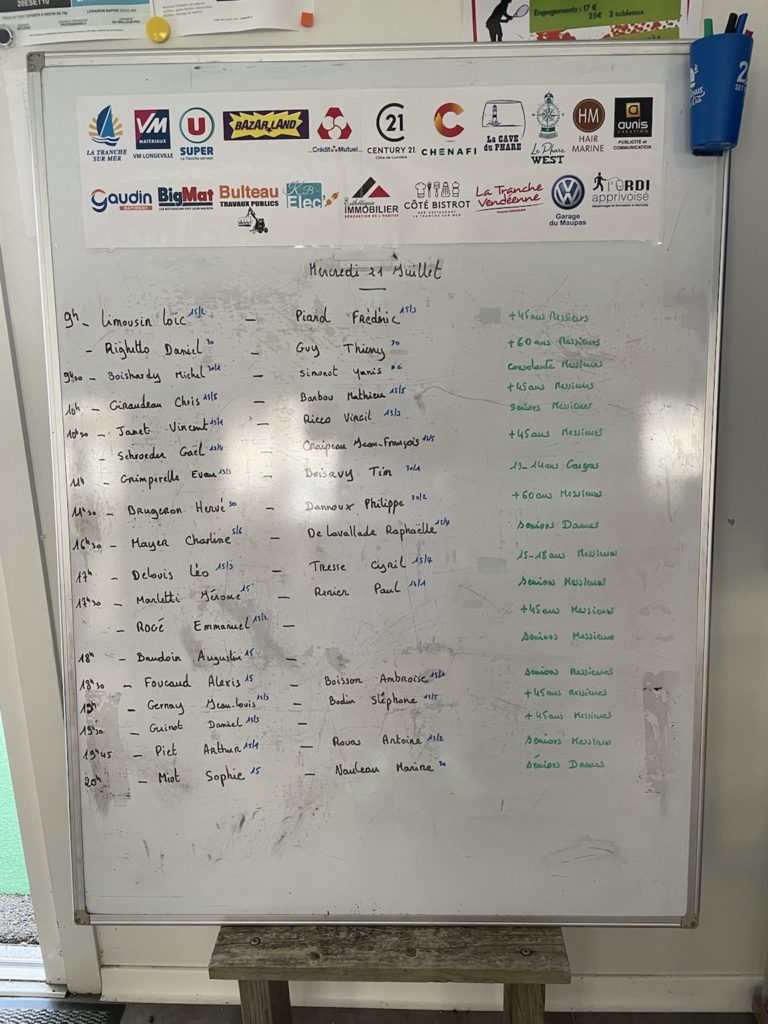 20ESE110
Engagements : 17 €
25€ 2 tableaux
LA TRANCHE SUR MER
VM MATÉRIAUX
VM LONGEVILLE
U
SUPER
BAZARLAND
Crédit Mutuel
C21
CENTURY 21
C
CHENAFI
La CAVE du PHARE
Le Phare WEST
HM
HAIR MARINE
a
aunis
CRÉATION
PUBLICITÉ et COMMUNICATION
Gaudin
BATIMENT
BigMat
Bulteau
TRAVAUX PUBLICS
KB Elec'
Esthétique IMMOBILIER
RÉNOVATION DE L'HABITAT
CÔTÉ BISTROT
La Tranche Vendéenne
VW
Garage du Maupas
L'ORDI apprivoisé
Mercredi 21 Juillet
9h - Limousin Loïc 15/2 - Piard Frédéric 15/3 +45ans Messieurs
- Righetto Daniel 30 - Guy Thierry 30 +60 ans Messieurs
9h30 - Boishardy Michel 30/1 - Simonot Yanis Consolante Messieurs
10h - Giraudeau Chris 15/5 - Barbou Mathieu 15/5 +45ans Messieurs
10h30 - Janet Vincent 15/1 - Ricco Virgil 15/3 Seniors Messieurs
- Schroeder Gaël 15/4 - Craipeau Jean-François 15/5 +45ans Messieurs
11h - Grimperelle Evan 15/3 - Boisavy Tim 30/1 13-14ans Garçons
11h30 - Brugeron Hervé 30 - Dannoux Philippe 30/2 +60ans Messieurs
16h30 - Mayer Charline 5/6 - De Lavallade Raphaëlle 15/4 Seniors Dames
17h - Delouis Léo 15/3 - Tresse Cyril 15/4 15-18ans Messieurs
17h30 - Marletti Jérôme 15 - Renier Paul 15/1 Seniors Messieurs
- ROGÉ Emmanuel 15/2 - +45ans Messieurs
18h - Baudoin Augustin 15 - Seniors Messieurs
18h30 - Foucaud Alexis 15 - Boisson Ambroise 15/1 Seniors Messieurs
19h - Gernay Jean-Louis 15/3 - Bodin Stéphane 15/5 +45ans Messieurs
19h30 - Guinot Daniel 15/3 - +45ans Messieurs
19h45 - Piet Arthur 15/1 - Rouas Antoine 15/2 Seniors Messieurs
20h - Miot Sophie 15 - Nauleau Marine 30 Séniors Dames